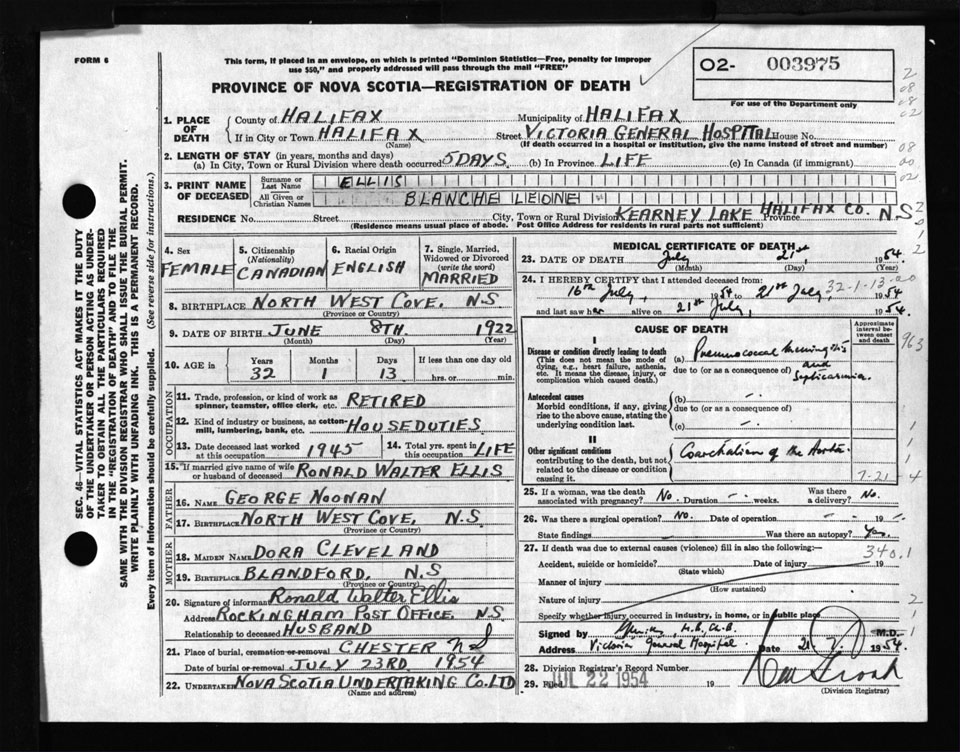 FORM 6
This form, if placed in an envelope, on which is printed "Dominion Statistics—Free, penalty for improper
use $50," and properly addressed will pass through the mail "FREE"
PROVINCE OF NOVA SCOTIA—REGISTRATION OF DEATH
02- 003975
For use of the Department only
SEC. 46—VITAL STATISTICS ACT MAKES IT THE DUTY
OF THE UNDERTAKER OR PERSON ACTING AS UNDER-
TAKER TO OBTAIN ALL THE PARTICULARS REQUIRED
IN THE "REGISTRATION OF DEATH" AND TO FILE THE
SAME WITH THE DIVISION REGISTRAR WHO SHALL ISSUE THE BURIAL PERMIT.
WRITE PLAINLY WITH UNFADING INK. THIS IS A PERMANENT RECORD.
Every item of information should be carefully supplied. (See reverse side for instructions.)
1. PLACE OF DEATH
County of HALIFAX Municipality of HALIFAX
If in City or Town HALIFAX Street VICTORIA GENERAL HOSPITAL House No.
(Name) (If death occurred in a hospital or institution, give the name instead of street and number)
2. LENGTH OF STAY (in years, months and days)
(a) In City, Town or Rural Division where death occurred 5 DAYS (b) In Province LIFE (c) In Canada (if immigrant)
3. PRINT NAME OF DECEASED
Surname or Last Name ELLIS
All Given or Christian Names BLANCHE LEONE
RESIDENCE No. Street City, Town or Rural Division KEARNEY LAKE HALIFAX CO. Province N.S
(Residence means usual place of abode. Post Office Address for residents in rural parts not sufficient)
4. Sex FEMALE
5. Citizenship (Nationality) CANADIAN
6. Racial Origin ENGLISH
7. Single, Married, Widowed or Divorced (write the word) MARRIED
8. BIRTHPLACE NORTH WEST COVE, N.S
(Province or Country)
9. DATE OF BIRTH JUNE 8TH. 1922
(Month) (Day) (Year)
10. AGE in Years 32 Months 1 Days 13 If less than one day old hrs. or min.
OCCUPATION
11. Trade, profession, or kind of work as spinner, teamster, office clerk, etc. RETIRED
12. Kind of industry or business, as cotton-mill, lumbering, bank, etc. HOUSEDUTIES
13. Date deceased last worked at this occupation 1945
14. Total yrs. spent in this occupation LIFE
15. If married give name of wife or husband of deceased RONALD WALTER ELLIS
FATHER
16. NAME GEORGE NOONAN
17. BIRTHPLACE NORTH WEST COVE, N.S
(Province or Country)
MOTHER
18. MAIDEN NAME DORA CLEVELAND
19. BIRTHPLACE BLANDFORD, N.S
(Province or Country)
20. Signature of informant Ronald Walter Ellis
Address ROCKINGHAM POST OFFICE, N.S
Relationship to deceased HUSBAND
21. Place of burial, cremation or removal CHESTER NS
Date of burial or removal JULY 23RD 1954
22. UNDERTAKER NOVA SCOTIA UNDERTAKING CO. LTD
(Name and address)
MEDICAL CERTIFICATE OF DEATH
23. DATE OF DEATH July 21st 1954.
(Month) (Day) (Year)
24. I HEREBY CERTIFY that I attended deceased from:
16th July, 1954 to 21st July, 1954
32-1-13-00
and last saw her alive on 21st July, 1954.
CAUSE OF DEATH
Approximate interval between onset and death
I
Disease or condition directly leading to death
(This does not mean the mode of dying, e.g., heart failure, asthenia, etc. It means the disease, injury, or complication which caused death.)
(a) Pneumococcal meningitis and septicaemia.
due to (or as a consequence of)
Antecedent causes
Morbid conditions, if any, giving rise to the above cause, stating the underlying condition last.
(b)
due to (or as a consequence of)
(c)
II
Other significant conditions
contributing to the death, but not related to the disease or condition causing it.
Coarctation of the Aorta.
7-21
25. If a woman, was the death associated with pregnancy? No. Duration weeks. Was there a delivery? No.
26. Was there a surgical operation? No. Date of operation 19
State findings Was there an autopsy? Yes.
27. If death was due to external causes (violence) fill in also the following:—
340.1
Accident, suicide or homicide? Date of injury 19
(State which)
Manner of injury
(How sustained)
Nature of injury
Specify whether injury occurred in industry, in home, or in public place
Signed by M.D.
Address Victoria General Hospital. Date 21 7 1954.
28. Division Registrar's Record Number
29. Filed JUL 22 1954 19
(Division Registrar)